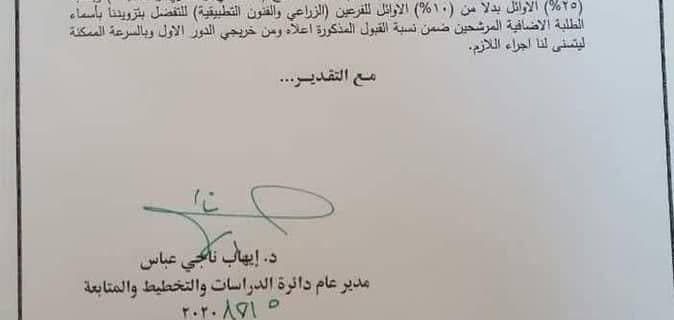 (٢٥%) الاوائل بدلا من (١٠%) الاوائل للفرعين (الزراعي والفنون التطبيقية) للتفضل بتزويدنا بأسماء
الطلبة الاضافية المرشحين ضمن نسبة القبول المذكورة اعلاه ومن خريجي الدور الاول وبالسرعة الممكنة
ليتسنى لنا اجراء اللازم.
مع التقدير...
د. إيهاب ناجي عباس
مدير عام دائرة الدراسات والتخطيط والمتابعة
٢٠٢٠